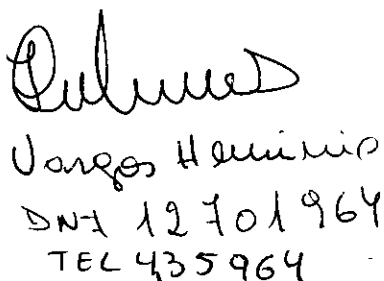 Vargas Herminio
DNI 12701964
TEL 435964